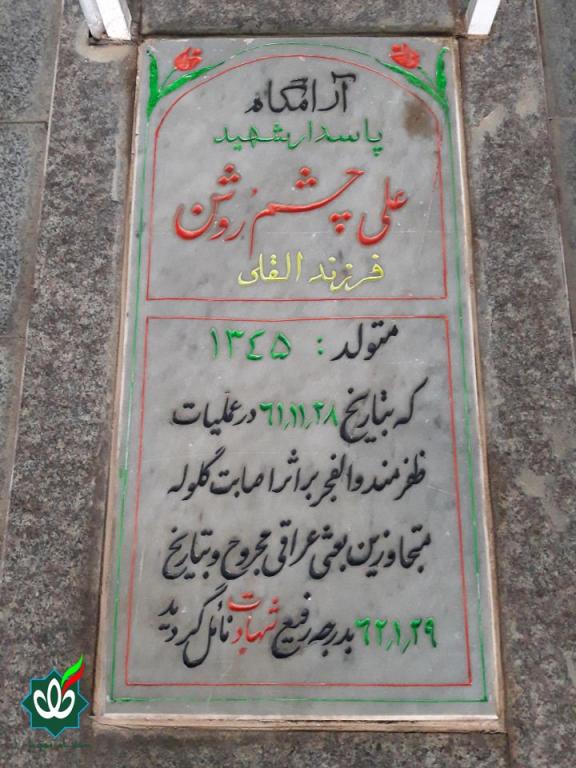 آرامگاه
پاسدار شهید
علی چشم روشن
فرزند القلی
متولد : ۱۳۴۵
که بتاریخ ۶۱,۱۱,۲۸ در عملیات
ظفرمند والفجر بر اثر اصابت گلوله
متجاوزین بعثی عراقی مجروح و بتاریخ
۶۲,۱,۲۹ بدرجه رفیع شهادت نائل گردید